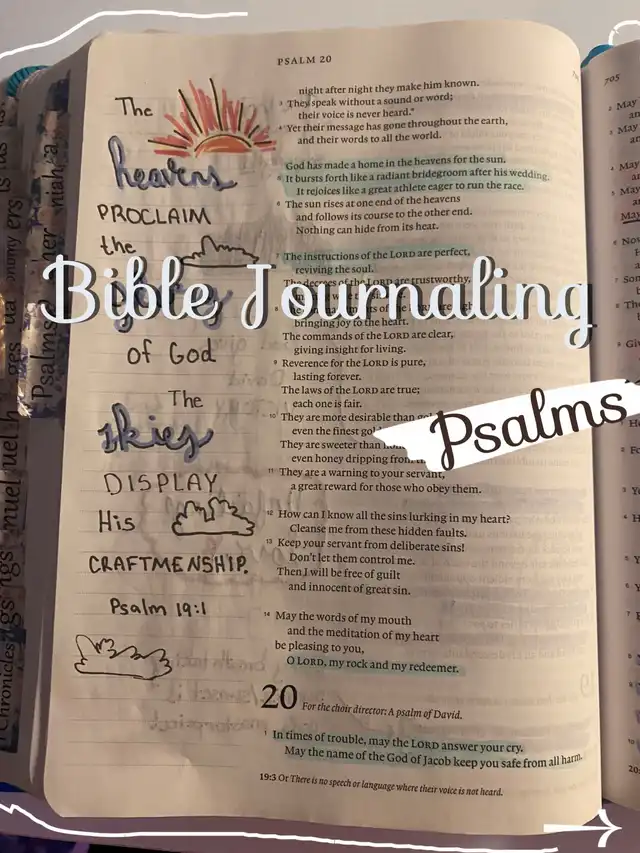 PSALM 20
The
heavens
PROCLAIM
the
glory
of God
The
skies
DISPLAY
His
CRAFTMENSHIP.
Psalm 19:1
night after night they make him known.
3 They speak without a sound or word;
their voice is never heard.*
4 Yet their message has gone throughout the earth,
and their words to all the world.
God has made a home in the heavens for the sun.
5 It bursts forth like a radiant bridegroom after his wedding.
It rejoices like a great athlete eager to run the race.
6 The sun rises at one end of the heavens
and follows its course to the other end.
Nothing can hide from its heat.
7 The instructions of the LORD are perfect,
reviving the soul.
The decrees of the LORD are trustworthy,
Bible Journaling
bringing joy to the heart.
The commands of the LORD are clear,
giving insight for living.
9 Reverence for the LORD is pure,
lasting forever.
The laws of the LORD are true;
each one is fair.
10 They are more desirable than
even the finest
Psalms
They are sweeter than
even honey dripping from
11 They are a warning to your servant,
a great reward for those who obey them.
12 How can I know all the sins lurking in my heart?
Cleanse me from these hidden faults.
13 Keep your servant from deliberate sins!
Don't let them control me.
Then I will be free of guilt
and innocent of great sin.
14 May the words of my mouth
and the meditation of my heart
be pleasing to you,
O LORD, my rock and my redeemer.
20 For the choir director: A psalm of David.
1 In times of trouble, may the LORD answer your cry.
May the name of the God of Jacob keep you safe from all harm.
19:3 Or There is no speech or language where their voice is not heard.
705
2 May
3 May
4 May
5 May
May
Psalms
Chronicles